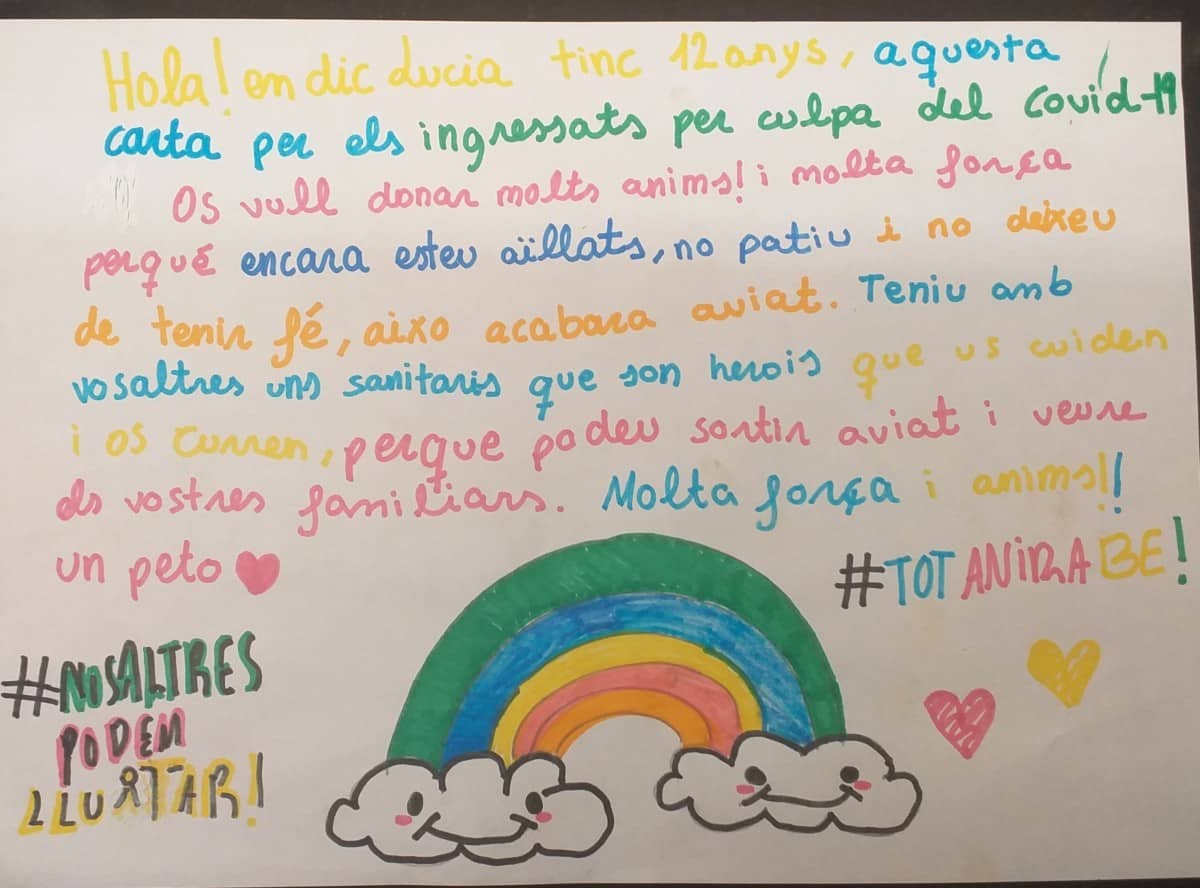 Hola! em dic Lucia tinc 12 anys, aquesta
carta per els ingressats per culpa del Covid-19
Os vull donar molts anims! i molta força
perqué encara esteu aïllats, no patiu i no deixeu
de tenir fé, aixo acabara aviat. Teniu amb
vosaltres uns sanitaris que son herois que us cuiden
i os curren, perque podeu sortir aviat i veure
els vostres familiars. Molta força i anims!!
un peto
#TOT ANIRA BE!
#NOSALTRES
PODEM
LLUITAR!